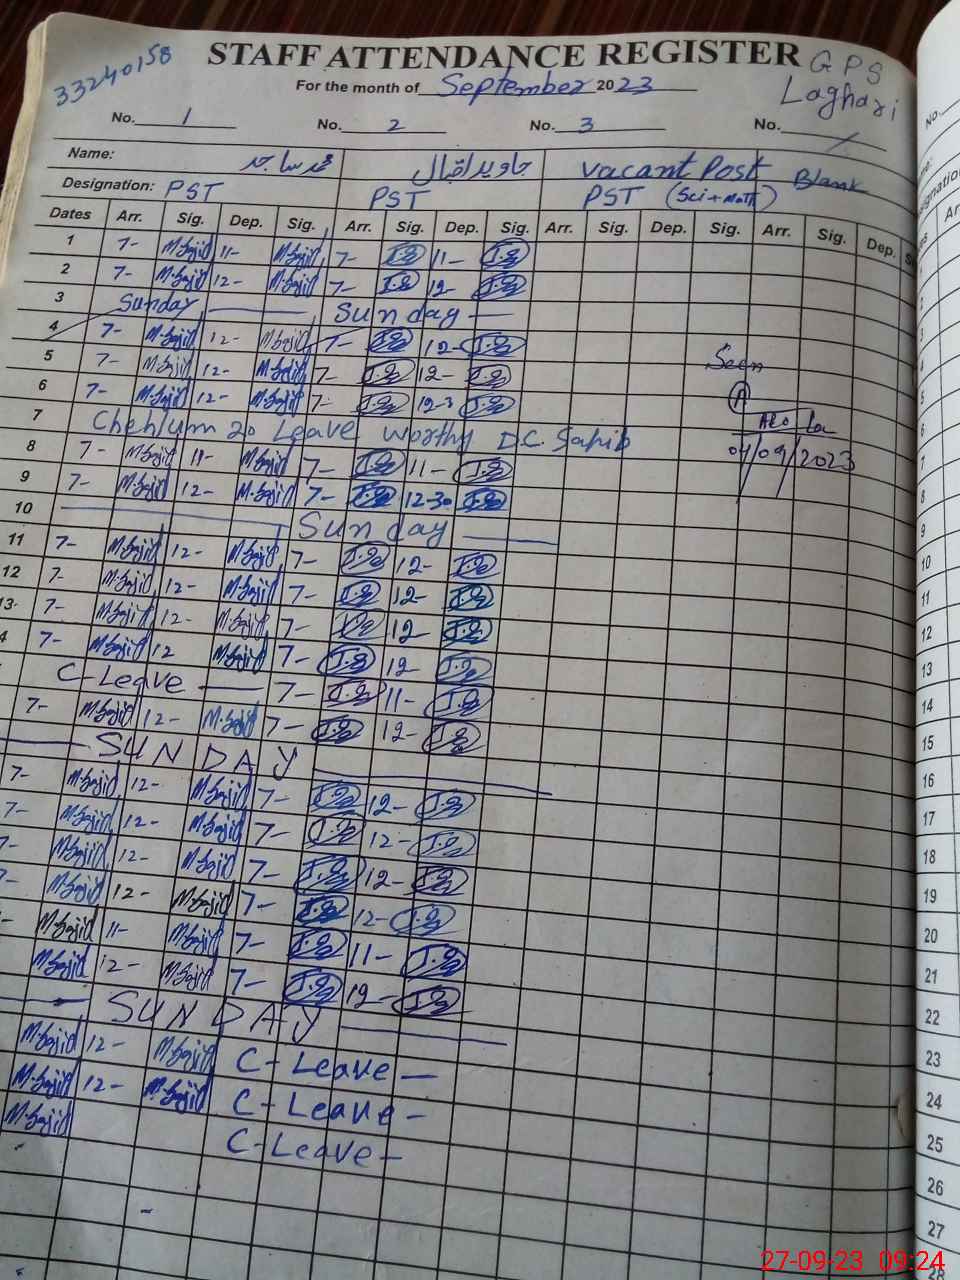 33240158
STAFF ATTENDANCE REGISTER
GPS
Laghari
For the month of September 2023
No. 1 No. 2 No. 3 No.
Name: محمد ساجد جاوید اقبال Vacant Post Blank
Designation: PST PST PST (Sci+Math)
Dates Arr. Sig. Dep. Sig. Arr. Sig. Dep. Sig. Arr. Sig. Dep. Sig. Arr. Sig. Dep.
1 7- M.Sajid 11- M.Sajid 7- 11-
2 7- M.Sajid 12- M.Sajid 7- 12-
3 Sunday Sunday
4 7- M.Sajid 12- M.Sajid 7- 12-
5 7- M.Sajid 12- M.Sajid 7- 12- Seen
6 7- M.Sajid 12- M.Sajid 7- 12-3
7 Chehlum 20 Leave worthy D.C. Sahib
04/09/2023
8 7- M.Sajid 11- M.Sajid 7- 11-
9 7- M.Sajid 12- M.Sajid 7- 12-30
10 Sunday
11 7- M.Sajid 12- M.Sajid 7- 12-
12 7- M.Sajid 12- M.Sajid 7- 12-
13 7- M.Sajid 12- M.Sajid 7- 12-
4 7- M.Sajid 12 M.Sajid 7- 12-
C-Leave 7- 11-
7- M.Sajid 12- M.Sajid 7- 12-
SUNDAY
7- M.Sajid 12- M.Sajid 7- 12-
7- M.Sajid 12- M.Sajid 7- 12-
7- M.Sajid 12- M.Sajid 7- 12-
7- M.Sajid 12- M.Sajid 7- 12-
M.Sajid 11- M.Sajid 7- 11-
M.Sajid 12- M.Sajid 7- 12-
SUNDAY
M.Sajid 12- M.Sajid C-Leave
M.Sajid 12- M.Sajid C-Leave-
M.Sajid C-Leave-
No.
Ar
2
3
4
5
6
7
8
9
10
11
12
13
14
15
16
17
18
19
20
21
22
23
24
25
26
27
28
27-09-23 09:24